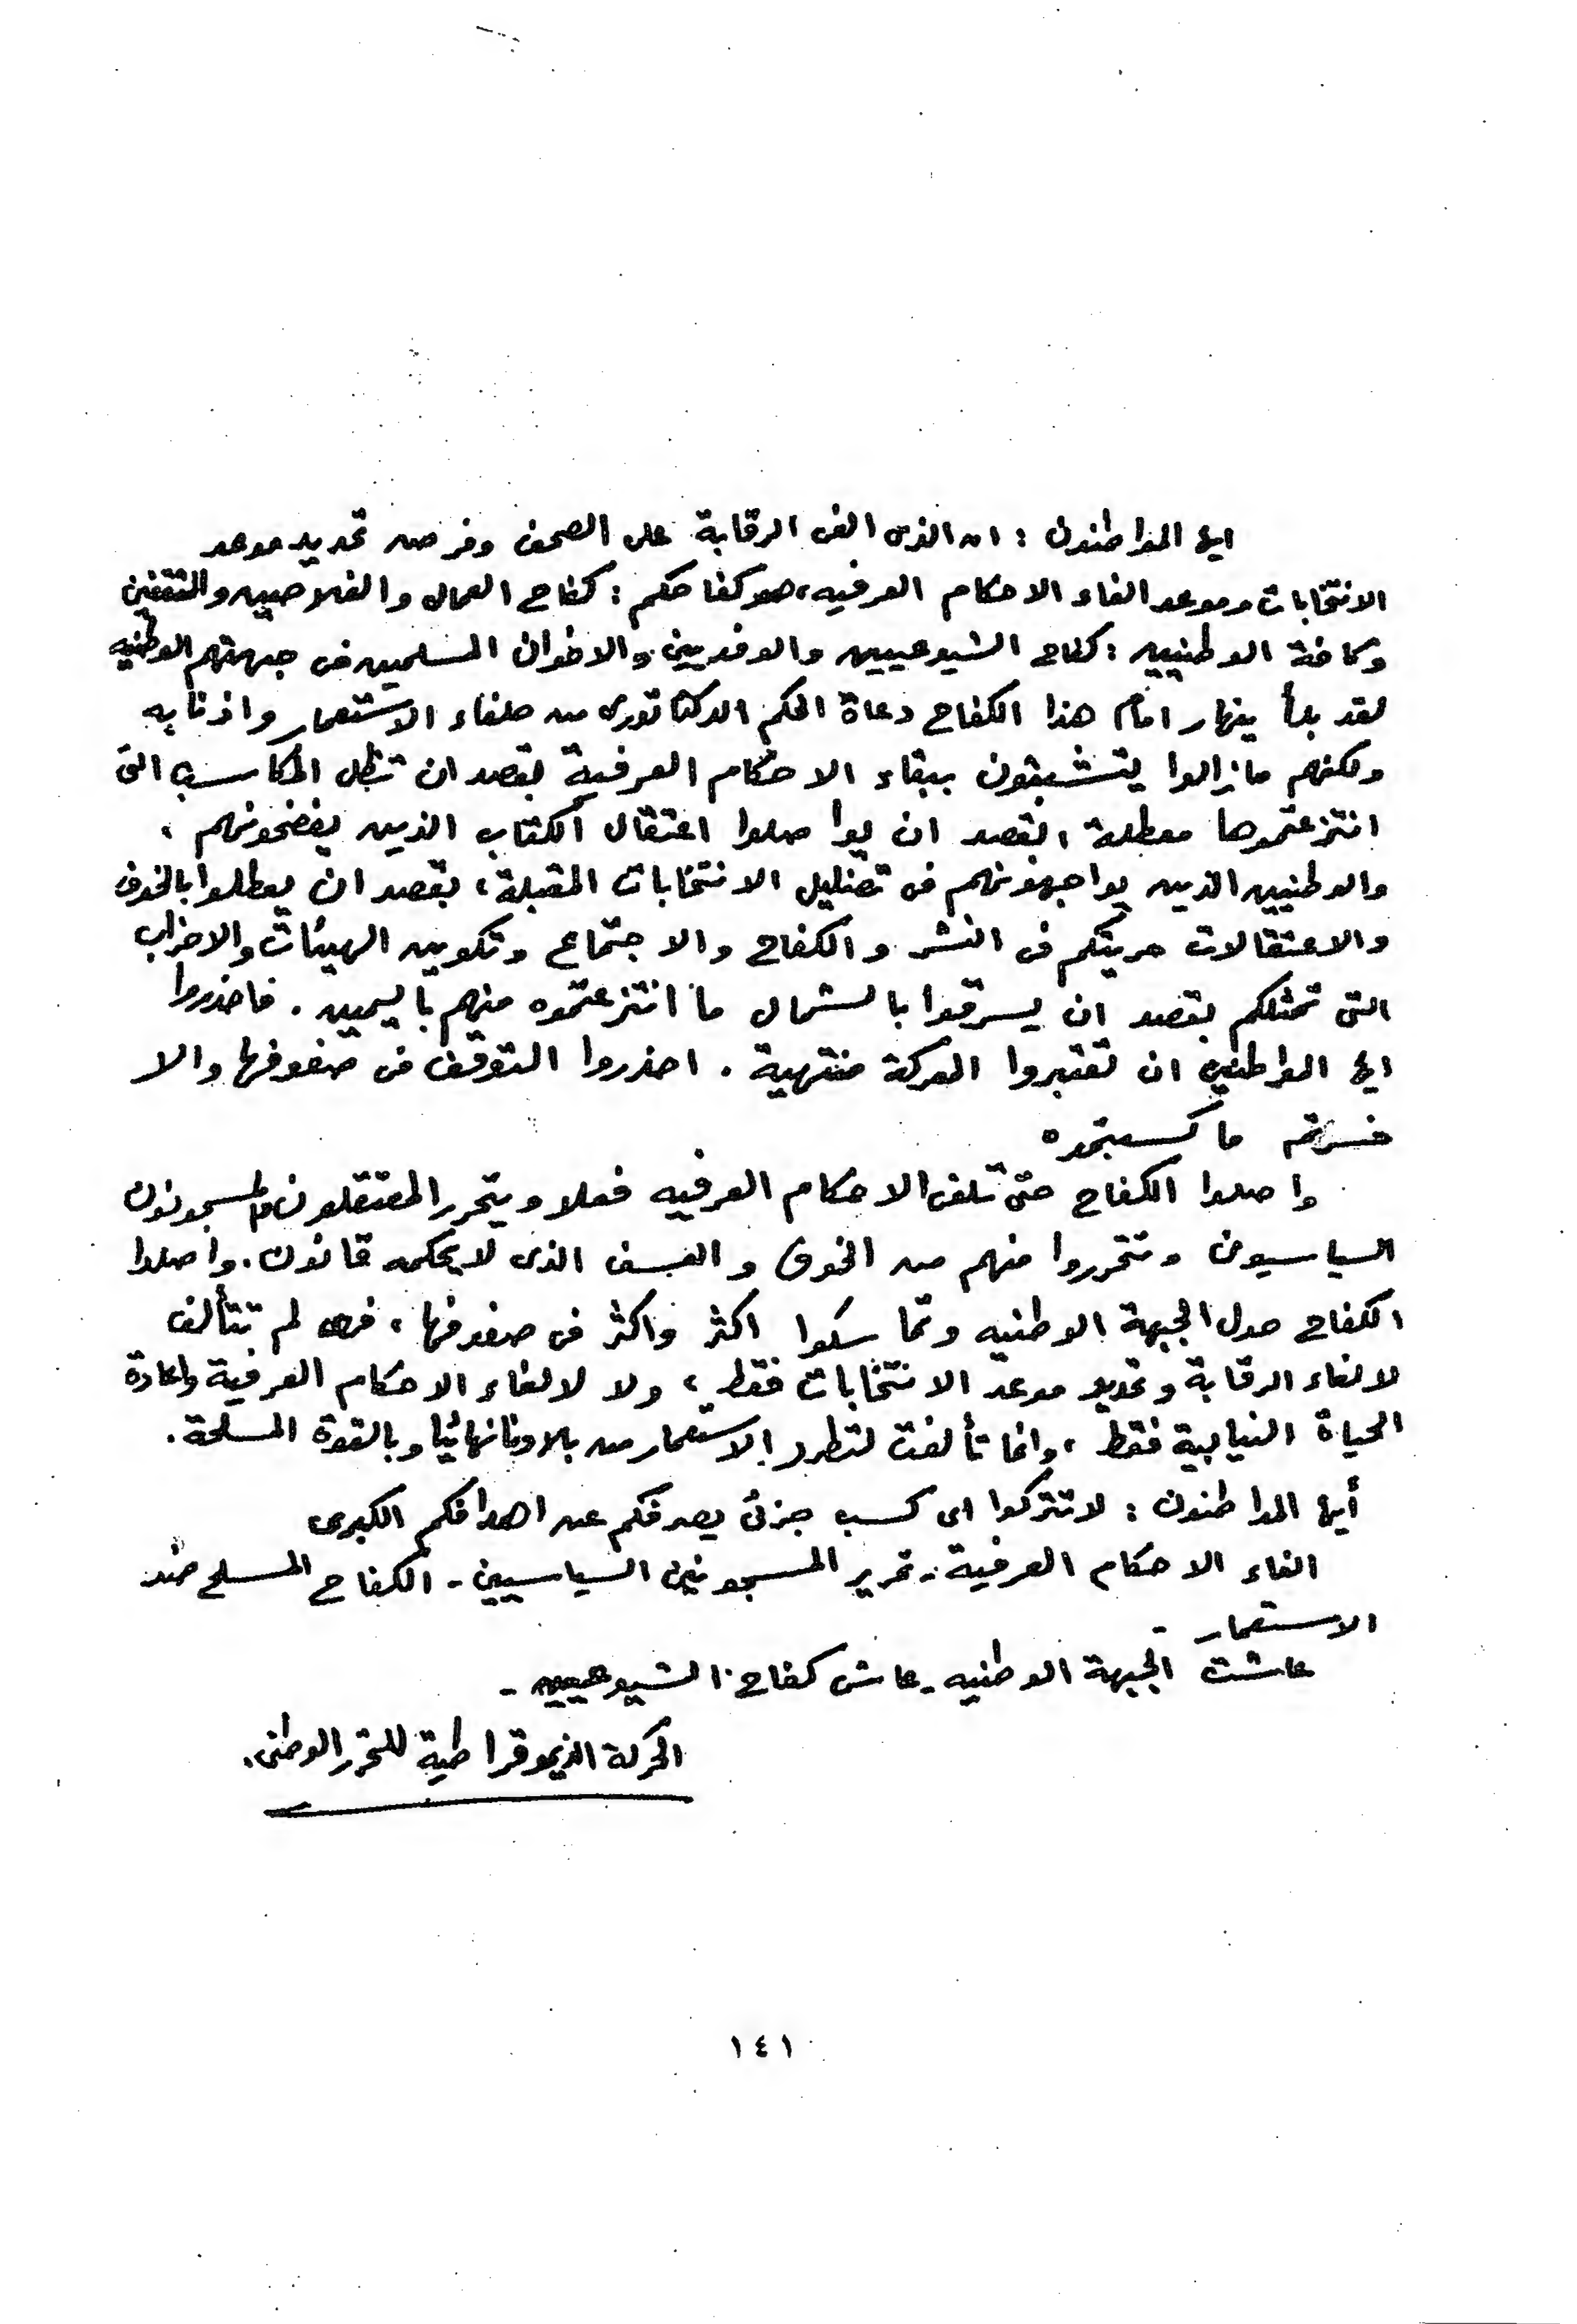 ايها المواطنون : ان الذى الغى الرقابة على الصحف وفرض تحديد موعد
الانتخابات وموعد الغاء الاحكام العرفيه، هو كفاحكم : كفاح العمال والفلاحين والمثقفين
وكافة الوطنيين : كفاح الشيوعيين والوفديين والاخوان المسلمين فى جبهتهم الوطنيه
لقد بدأ ينهار امام هذا الكفاح دعاة الحكم الدكتاتورى من حلفاء الاستعمار واذنابه
ولكنهم مازالوا يتشبثون ببقاء الاحكام العرفية بقصد ان تظل المكاسب التى
انتزعتموها معطلة بقصد ان يواصلوا اعتقال الكتاب الذين يفضحونهم ،
والوطنيين الذين يواجهونهم فى تضليل الانتخابات المقبلة ، بقصد ان يعطلوا بالخوف
والاعتقالات حريتكم فى النشر والكفاح والاجتماع وتكوين الهيئات والاحزاب
التى تمثلكم بقصد ان يسرقوا بالشمال ما انتزعتموه منهم باليمين . فاحذروا
ايها المواطنين ان تعتبروا المعركة منتهية . احذروا التوقف فى صفوفها والا
خسرتم ما كسبتموه
واصلوا الكفاح حتى تلغى الاحكام العرفيه فعلا ويتحرر المعتقلون والمسجونون
السياسيون وتتحرروا منهم من الخوف والعسف الذى لا يحكمه قانون . واصلوا
الكفاح حول الجبهة الوطنيه وتماسكوا اكثر واكثر فى صفوفها ، فهى لم تتألف
لالغاء الرقابة وتحديد موعد الانتخابات فقط ، ولا لالغاء الاحكام العرفية واعادة
الحياة النيابية فقط ، وانما تألفت لتطرد الاستعمار من بلادنا نهائيا وبالقوة المسلحة .
أيها المواطنون : لا تتركوا اى كسب جزئى يصرفكم عن اهدافكم الكبرى
الغاء الاحكام العرفية - تحرير المسجونين السياسيين - الكفاح المسلح ضد
الاستعمار -
عاشت الجبهة الوطنيه - عاش كفاح الشيوعيين -
الحركة الديموقراطية للتحرر الوطنى .
١٤١